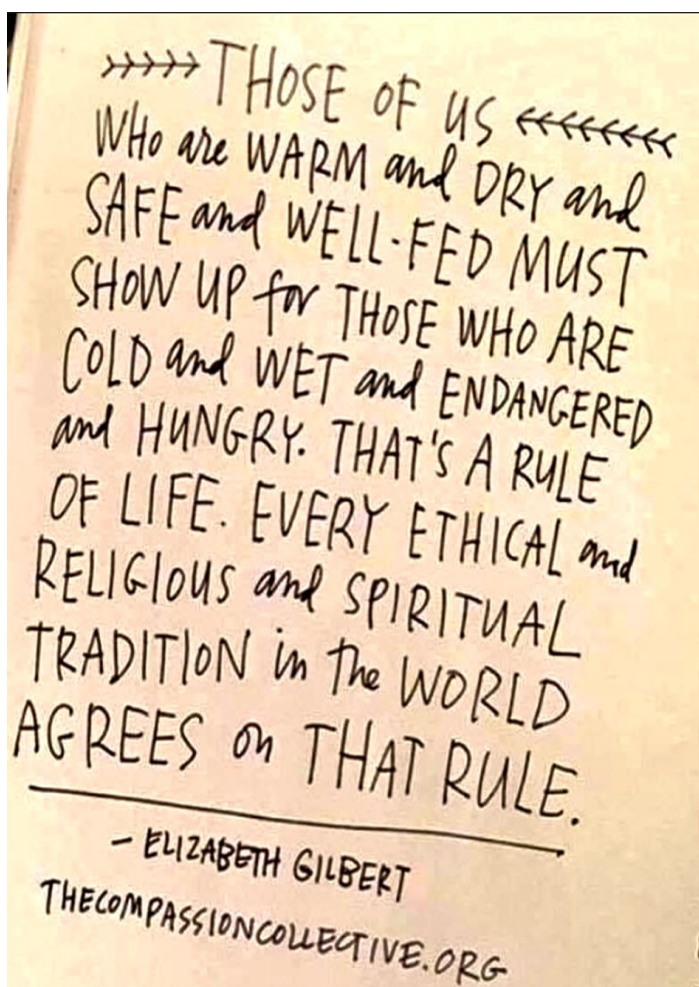 THOSE OF US
WHo are WARM and DRY and
SAFE and WELL-FED MUST
SHOW UP for THOSE WHO ARE
COLD and WET and ENDANGERED
and HUNGRY. THAT'S A RULE
OF LIFE. EVERY ETHICAL and
RELIGIOUS and SPIRITUAL
TRADITION in The WORLD
AGREES on THAT RULE.
- ELIZABETH GILBERT
THECOMPASSIONCOLLECTIVE.ORG